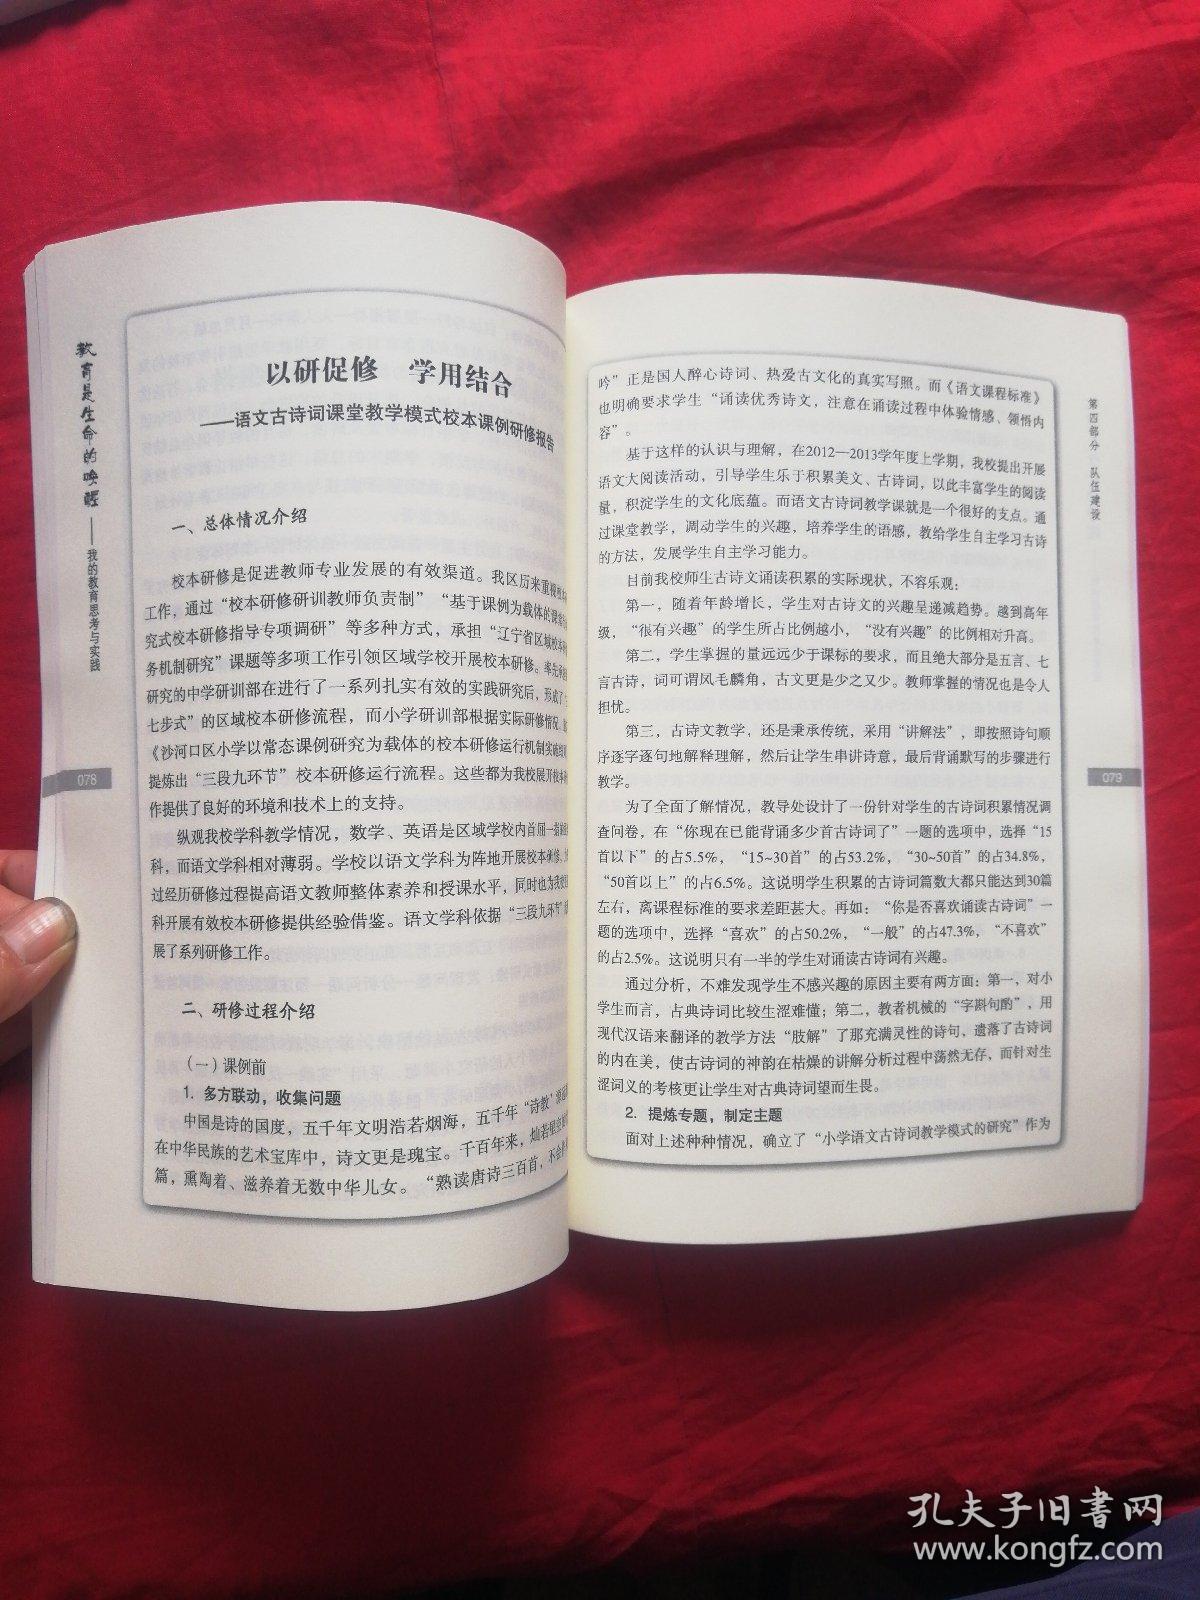 教育是生命的唤醒——我的教育思考与实践
078
以研促修 学用结合
——语文古诗词课堂教学模式校本课例研修报告
一、总体情况介绍
校本研修是促进教师专业发展的有效渠道。我区历来重视
工作，通过“校本研修研训教师负责制”“基于课例为载体的课堂
究式校本研修指导专项调研”等多种方式，承担“辽宁省区域校本
务机制研究”课题等多项工作引领区域学校开展校本研修。率先
研究的中学研训部在进行了一系列扎实有效的实践研究后，形成了
七步式”的区域校本研修流程，而小学研训部根据实际研修情况，
《沙河口区小学以常态课例研究为载体的校本研修运行机制实施
提炼出“三段九环节”校本研修运行流程。这些都为我校开展校本
作提供了良好的环境和技术上的支持。
纵观我校学科教学情况，数学、英语是区域学校内首屈一指
科，而语文学科相对薄弱。学校以语文学科为阵地开展校本研修，
过经历研修过程提高语文教师整体素养和授课水平，同时也为我校
科开展有效校本研修提供经验借鉴。语文学科依据“三段九环节”
展了系列研修工作。
二、研修过程介绍
（一）课例前
1. 多方联动，收集问题
中国是诗的国度，五千年文明浩若烟海，五千年“诗教”源远
在中华民族的艺术宝库中，诗文更是瑰宝。千百年来，灿若星辰
篇，熏陶着、滋养着无数中华儿女。“熟读唐诗三百首，不会
吟”正是国人醉心诗词、热爱古文化的真实写照。而《语文课程标准》
也明确要求学生“诵读优秀诗文，注意在诵读过程中体验情感、领悟内
容”。
基于这样的认识与理解，在2012—2013学年度上学期，我校提出开展
语文大阅读活动，引导学生乐于积累美文、古诗词，以此丰富学生的阅读
量，积淀学生的文化底蕴。而语文古诗词教学课就是一个很好的支点。通
过课堂教学，调动学生的兴趣，培养学生的语感，教给学生自主学习古诗
的方法，发展学生自主学习能力。
目前我校师生古诗文诵读积累的实际现状，不容乐观：
第一，随着年龄增长，学生对古诗文的兴趣呈递减趋势。越到高年
级，“很有兴趣”的学生所占比例越小，“没有兴趣”的比例相对升高。
第二，学生掌握的量远远少于课标的要求，而且绝大部分是五言、七
言古诗，词可谓凤毛麟角，古文更是少之又少。教师掌握的情况也是令人
担忧。
第三，古诗文教学，还是秉承传统，采用“讲解法”，即按照诗句顺
序逐字逐句地解释理解，然后让学生串讲诗意，最后背诵默写的步骤进行
教学。
为了全面了解情况，教导处设计了一份针对学生的古诗词积累情况调
查问卷，在“你现在已能背诵多少首古诗词了”一题的选项中，选择“15
首以下”的占5.5%，“15~30首”的占53.2%，“30~50首”的占34.8%，
“50首以上”的占6.5%。这说明学生积累的古诗词篇数大都只能达到30篇
左右，离课程标准的要求差距甚大。再如：“你是否喜欢诵读古诗词”一
题的选项中，选择“喜欢”的占50.2%，“一般”的占47.3%，“不喜欢”
的占2.5%。这说明只有一半的学生对诵读古诗词有兴趣。
通过分析，不难发现学生不感兴趣的原因主要有两方面：第一，对小
学生而言，古典诗词比较生涩难懂；第二，教者机械的“字斟句酌”，用
现代汉语来翻译的教学方法“肢解”了那充满灵性的诗句，遗落了古诗词
的内在美，使古诗词的神韵在枯燥的讲解分析过程中荡然无存，而针对生
涩词义的考核更让学生对古典诗词望而生畏。
2. 提炼专题，制定主题
面对上述种种情况，确立了“小学语文古诗词教学模式的研究”作为
第四部分 队伍建设
079
孔夫子旧书网
www.kongfz.com